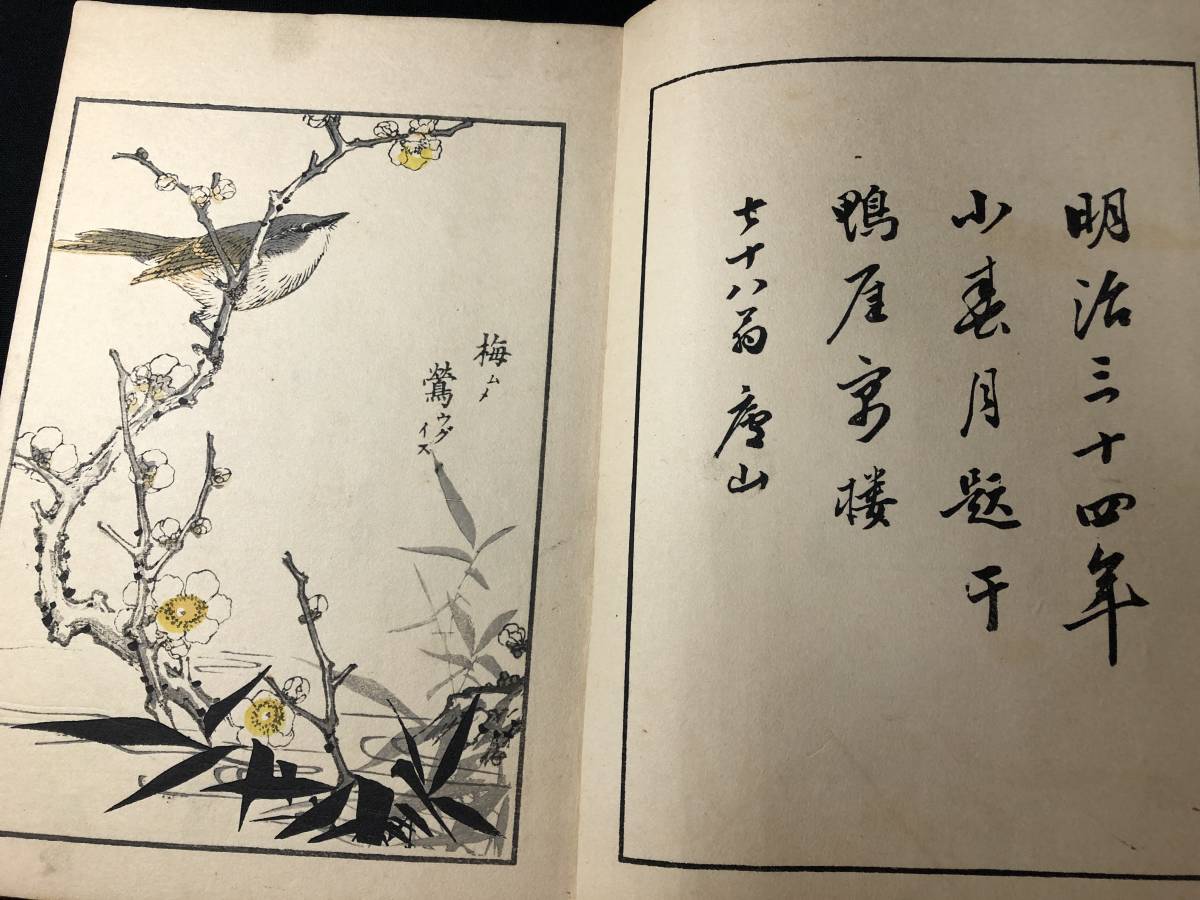 明治三十四年
小春月題于
鴨厓寓楼
七十八翁 廬山
梅ムメ
鶯ウグイス